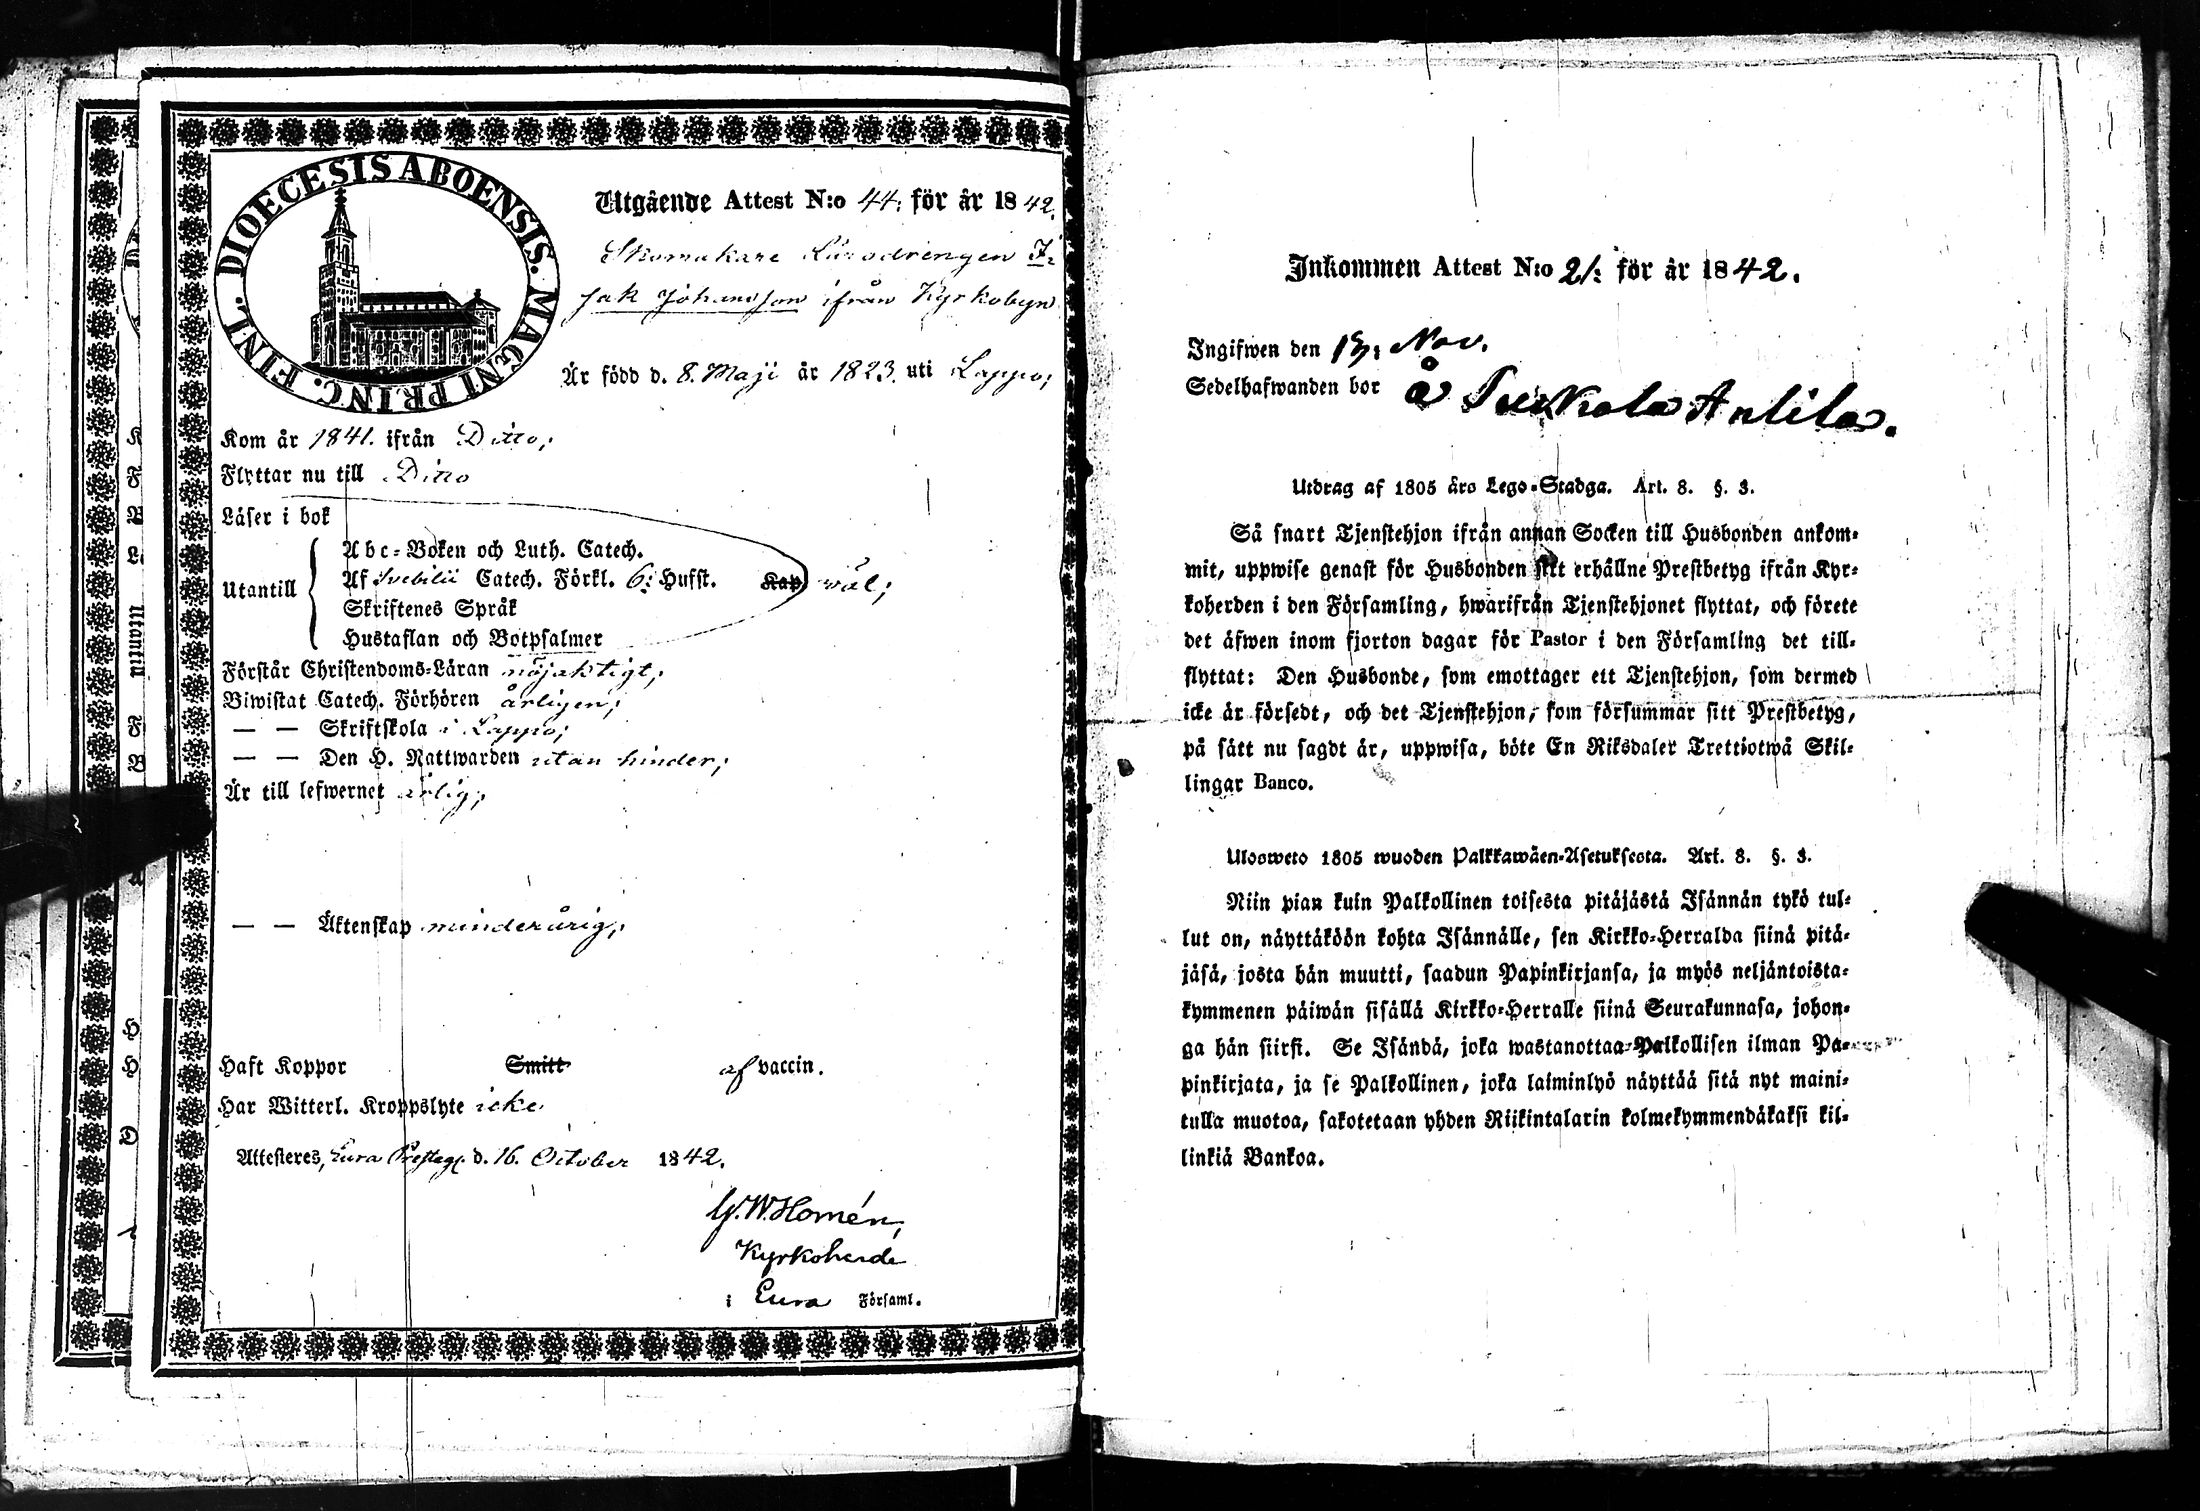 DIOECESIS ABOENSIS. MAGNI PRINC. FINL.
Utgående Attest N:o 44: för år 1842.
Skomakare Lärodrengen I:
sak Johansson ifrån Kyrkobyn
Är född d. 8. Maji år 1823. uti Lappo;
Kom år 1841. ifrån Ditto;
Flyttar nu till Ditto
Läser i bok
Utantill
Abc-Boken och Luth. Catech.
Af Svebilii Catech. Förkl. 6: Hufst. Kap väl;
Skriftenes Språk
Hustaflan och Botpsalmer
Förstår Christendoms-Läran nöjaktigt;
Biwistat Catech. Förhören årligen;
— — Skriftskola i Lappo;
— — Den H. Nattwarden utan hinder;
Är till lefwernet ärlig;
— — Äktenskap minderårig;
Haft Koppor Smitt af vaccin.
Har Witterl. Kroppslyte icke
Attesteres, Eura Presteg. d. 16. October 1842.
G. W. Homén,
Kyrkoherde
i Eura Församl.
Inkommen Attest N:o 21: för år 1842.
Ingifwen den Nov.
Sedelhafwanden bor å Anlila.
Utdrag af 1805 års Lego-Stadga. Art. 8. §. 3.
Så snart Tjenstehjon ifrån annan Socken till Husbonden ankom-
mit, uppwise genast för Husbonden sitt erhållne Prestbetyg ifrån Kyr-
koherden i den Församling, hwarifrån Tjenstehjonet flyttat, och förete
det äfwen inom fjorton dagar för Pastor i den Församling det till-
flyttat: Den Husbonde, som emottager ett Tjenstehjon, som dermed
icke är försedt, och det Tjenstehjon, som försummar sitt Prestbetyg,
på sätt nu sagdt är, uppwisa, böte En Riksdaler Trettiotwå Skil-
lingar Banco.
Ulosweto 1805 wuoden Palkkawäen-Asetuksesta. Art. 8. §. 3.
Niin pian kuin Palkollinen toisesta pitäjästä Isännän tykö tul-
lut on, näyttäköön kohta Isännälle, sen Kirkko-Herralda siinä pitä-
jäsä, josta hän muutti, saadun Papinkirjansa, ja myös neljäntoista-
kymmenen päiwän sisällä Kirkko-Herralle siinä Seurakunnasa, johon-
ga hän siirsi. Se Isändä, joka wastanottaa Palkollisen ilman Pa-
pinkirjata, ja se Palkollinen, joka laiminlyö näyttää sitä nyt maini-
tulla muotoa, sakotetaan yhden Riikintalarin kolmekymmendäkaksi kil-
linkiä Bankoa.